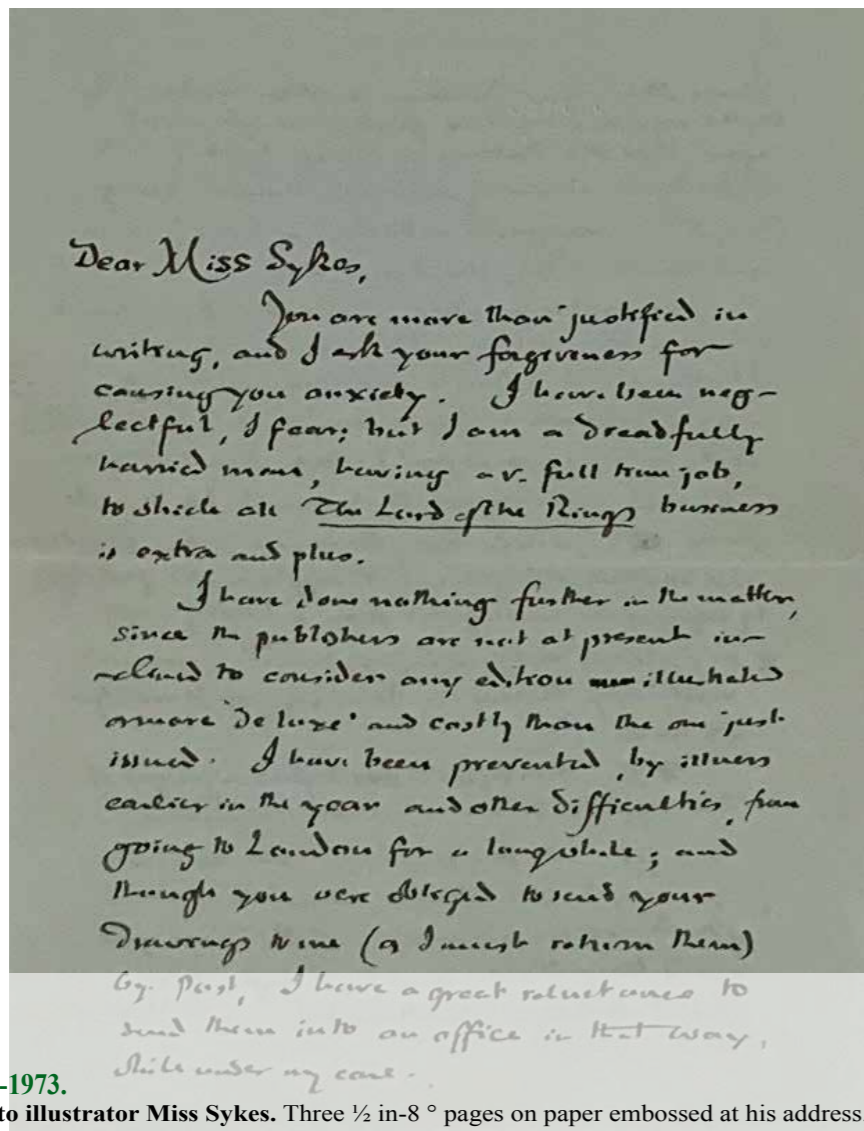 Dear Miss Sykes,
You are more than justified in
writing, and I ask your forgiveness for
causing you anxiety. I have been neg-
lectful, I fear; but I am a dreadfully
harried man, having a v. full time job,
to which all The Lord of the Rings business
is extra and plus.
I have done nothing further in the matter,
since the publishers are not at present in-
clined to consider any edition illustrated
or more 'de luxe' and costly than the one just
issued. I have been prevented, by illness
earlier in the year and other difficulties, from
going to London for a long while; and
though you were obliged to send your
drawings to me (as I must return them)
by post, I have a great reluctance to
send them into an office in that way,
while under my care.
-1973.
to illustrator Miss Sykes. Three ½ in-8 ° pages on paper embossed at his address